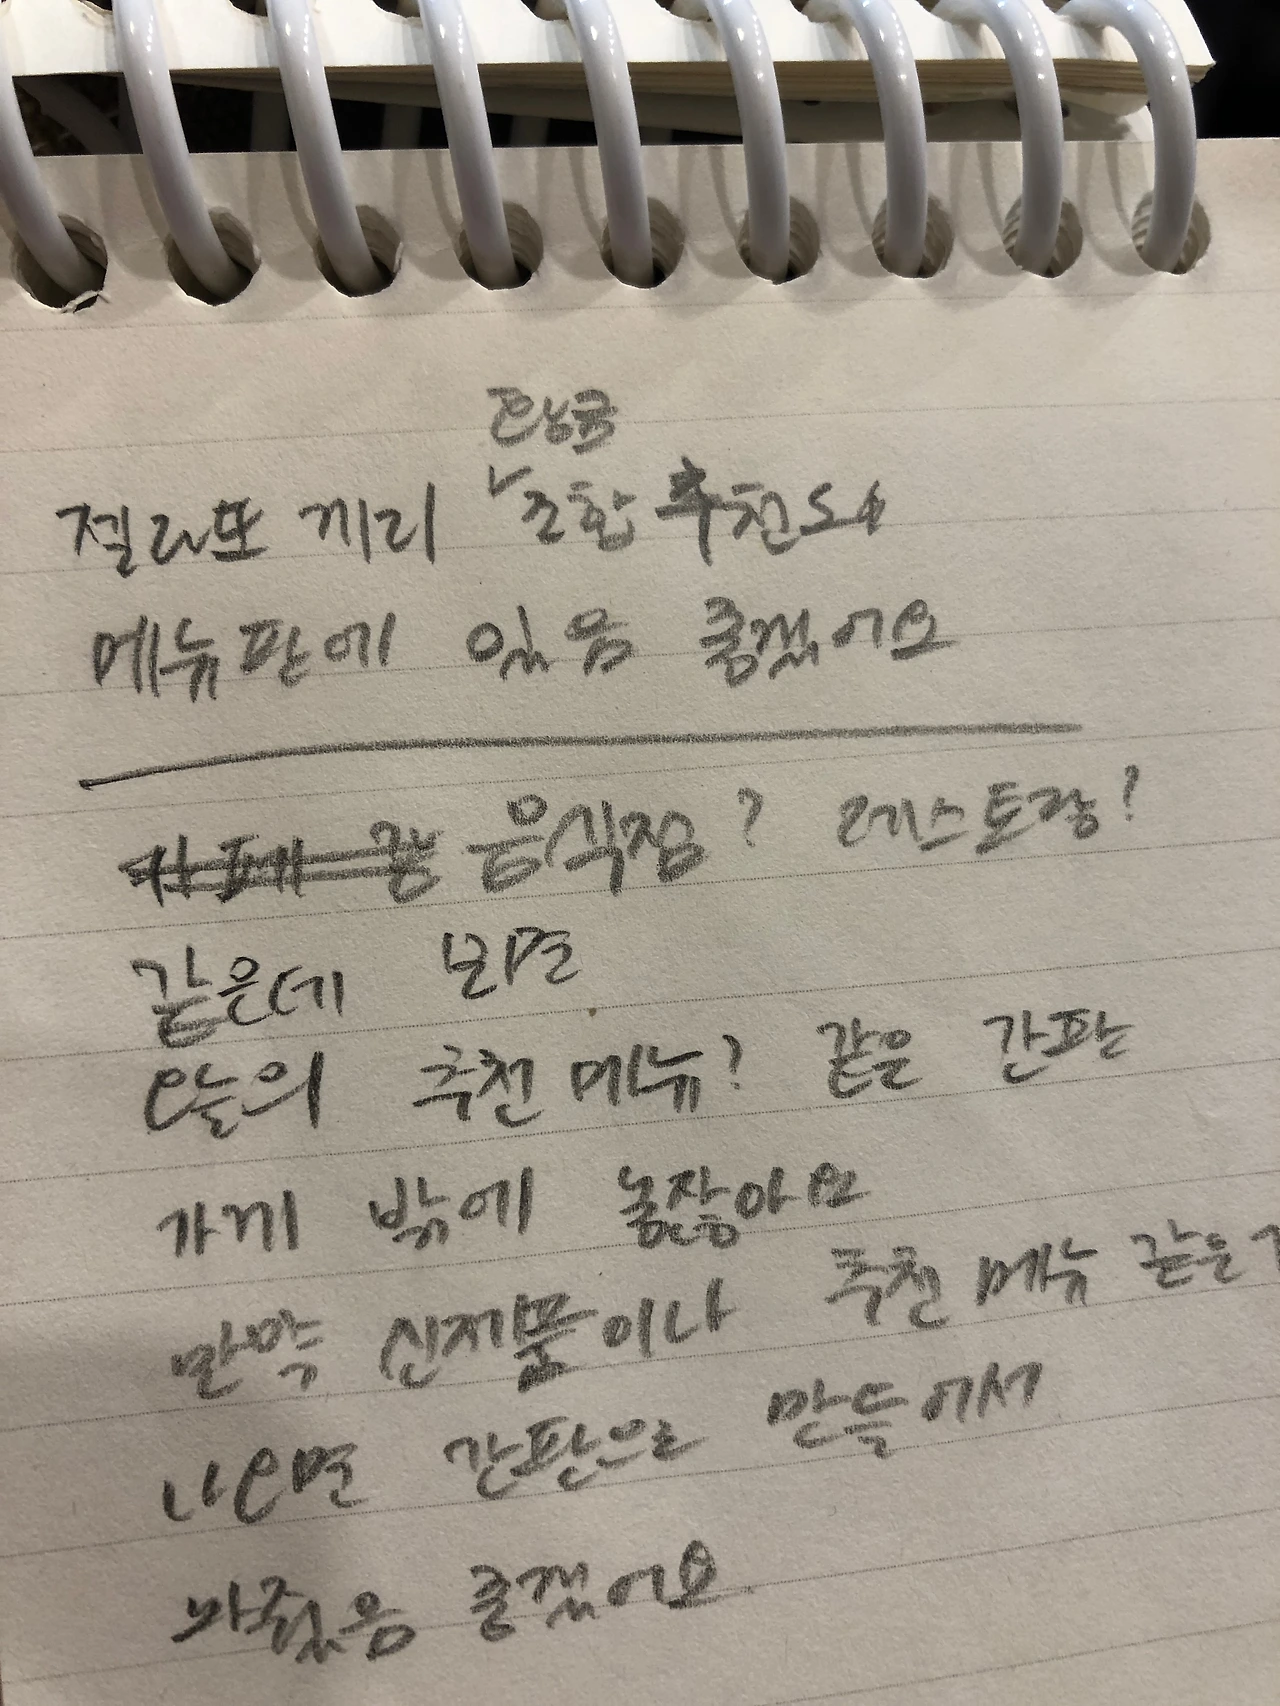 젤라또 끼리 조합 추천도
메뉴판에 있음 좋겠어요
음식점? 레스토랑?
같은데 보면
오늘의 추천 메뉴? 같은 간판
가게 밖에 놓잖아요
만약 신제품이나 추천 메뉴 같은
나오면 간판으로 만들어서
놔줬음 좋겠어요